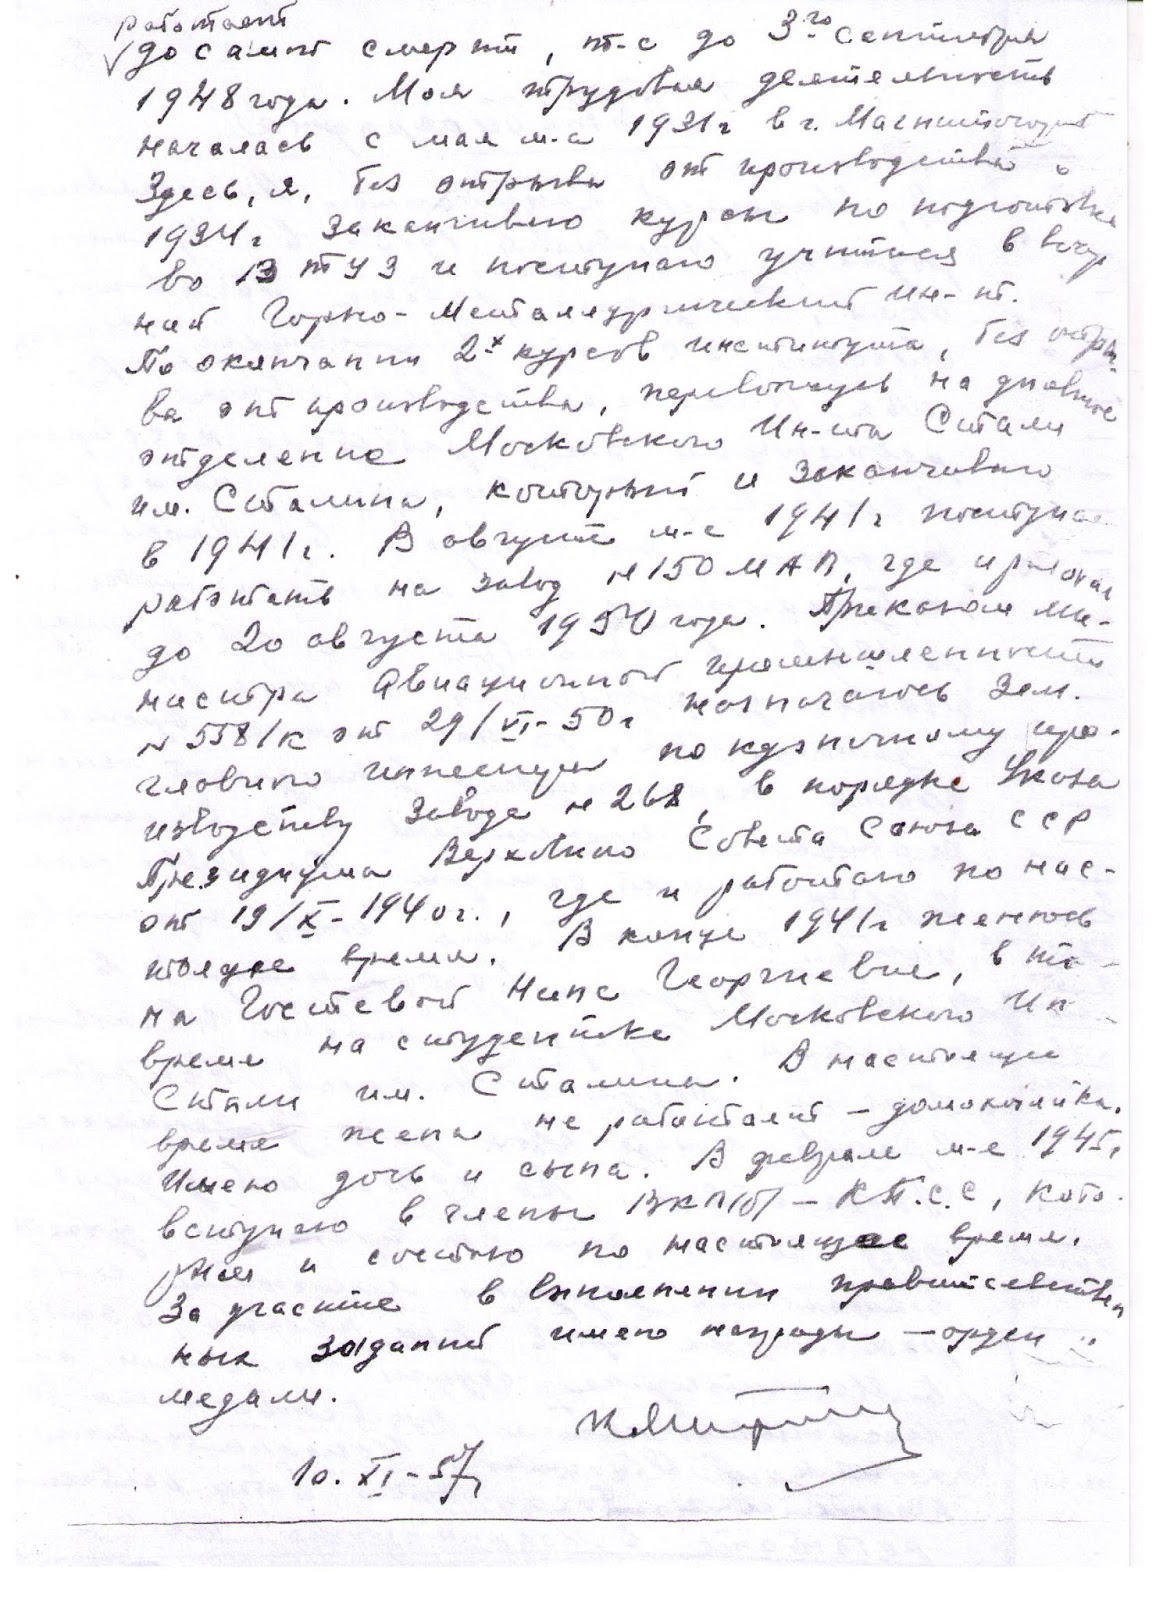 работает
до самой смерти, т-е до 3го Сентября
1948 года. Моя трудовая деятельность
началась с мая м-ца 1931г в г. Магнитогорске
Здесь, я, без отрыва от производства, в
1934г заканчиваю курсы по подготовке
во ВТУЗ и поступаю учиться в вечер
ний Горно-Металлургический Ин-т.
По окончании 2х курсов института, без отры-
ва от производства, перевожусь на дневное
отделение Московского Ин-та Стали
им. Сталина, который и заканчиваю
в 1941г. В августе м-це 1941г поступаю
работать на завод №150 МАП, где и работал
до 20 августа 1950 года. Приказом Ми-
нистра Авиационной промышленности
№ 558/к от 29/VI-50г назначаюсь Зам.
главного инженера по кузнечному про-
изводству Завода №268, в порядке Указа
Президиума Верховного Совета Союза ССР
от 19/X-1940г., где и работаю по нас-
тоящее время. В конце 1941г женюсь
на Гостевой Нине Георгиевне, в то
время на студентке Московского Ин-
Стали им. Сталина. В настоящее
время жена не работает – домохозяйка.
Имею дочь и сына. В феврале м-це 1945г
вступаю в члены ВКП(б) – К.П.С.С, кото
рой и состою по настоящее время.
За участие в выполнении правительствен
ных заданий имею награды – орден и
медали.
10. XI-57г